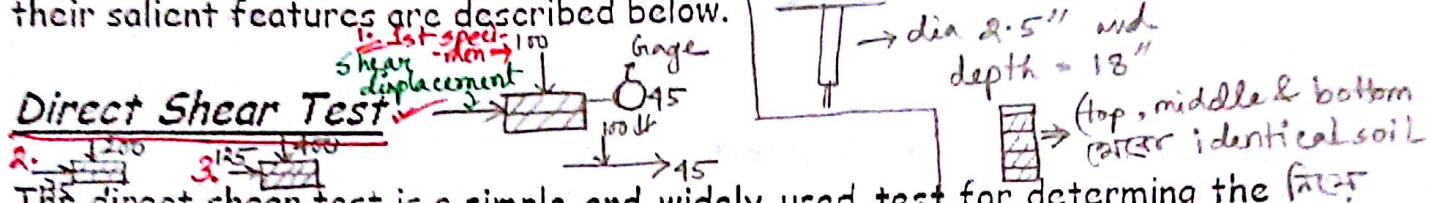 their salient features are described below.
1. 1st speci-
-men → 100
shear
displacement
Gage
45
100 lb
→45
→ dia 2.5" and
depth = 18"
Direct Shear Test
2. 200
3. 125 400
⇒ (top, middle & bottom
identical soil
The direct shear test is a simple and widely used test for determining the